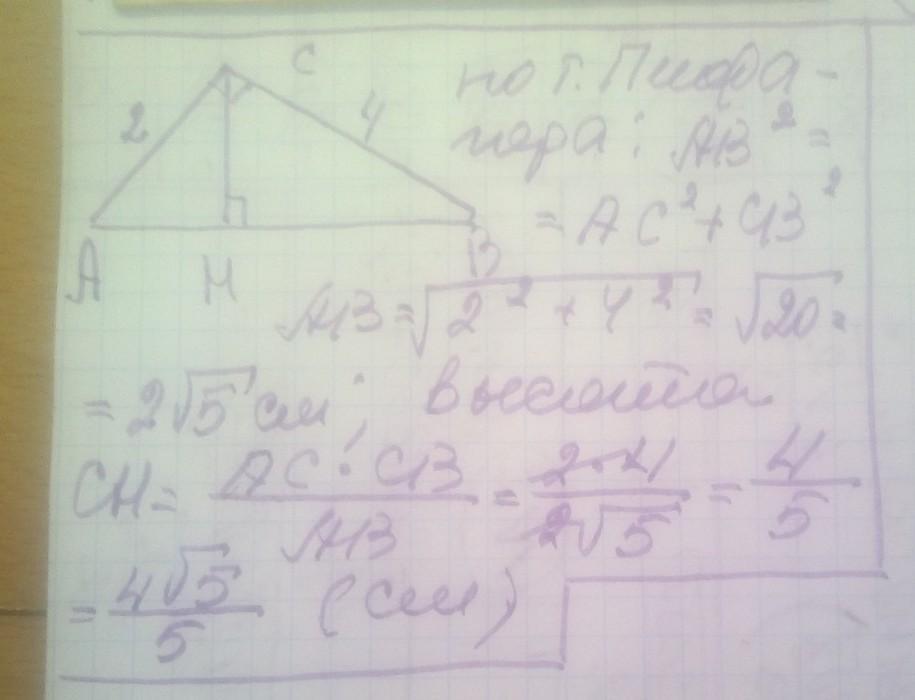 C
2
4
A
H
B
по т. Пифа-
гора: AB² =
= AC² + CB²
AB = √(2² + 4²) = √20 =
= 2√5 см; высота
CH = AC · CB / AB = 2·4 / 2√5 = 4/5
= 4√5 / 5 (см)